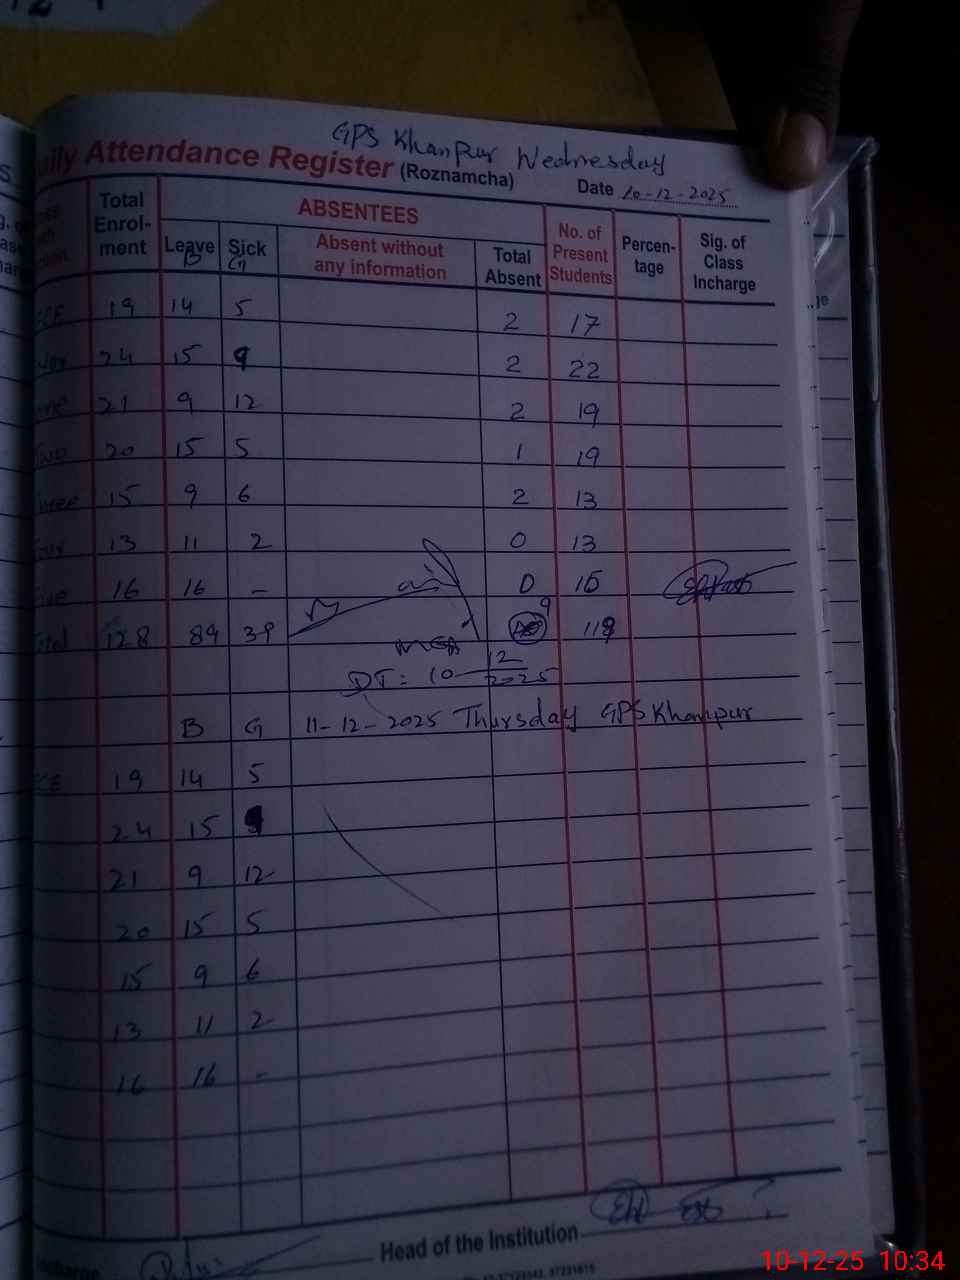 GPS Khanpur Wednesday
Attendance Register (Roznamcha) Date 10-12-2025
Total Enrol-ment ABSENTEES No. of Present Students Percen-tage Sig. of Class Incharge
Leave Sick Absent without any information Total Absent
B G
19 14 5 2 17
24 15 9 2 22
21 9 12 2 19
20 15 5 1 19
15 9 6 2 13
13 11 2 0 13
Five 16 16 - 0
Total 128 89 39 9
DT: 10-12-2025
B G 11-12-2025 Thursday GPS Khanpur
19 14 5
24 15 9
21 9 12
20 15 5
15 9 6
13 11 2
16 16 -
Head of the Institution
10-12-25 10:34